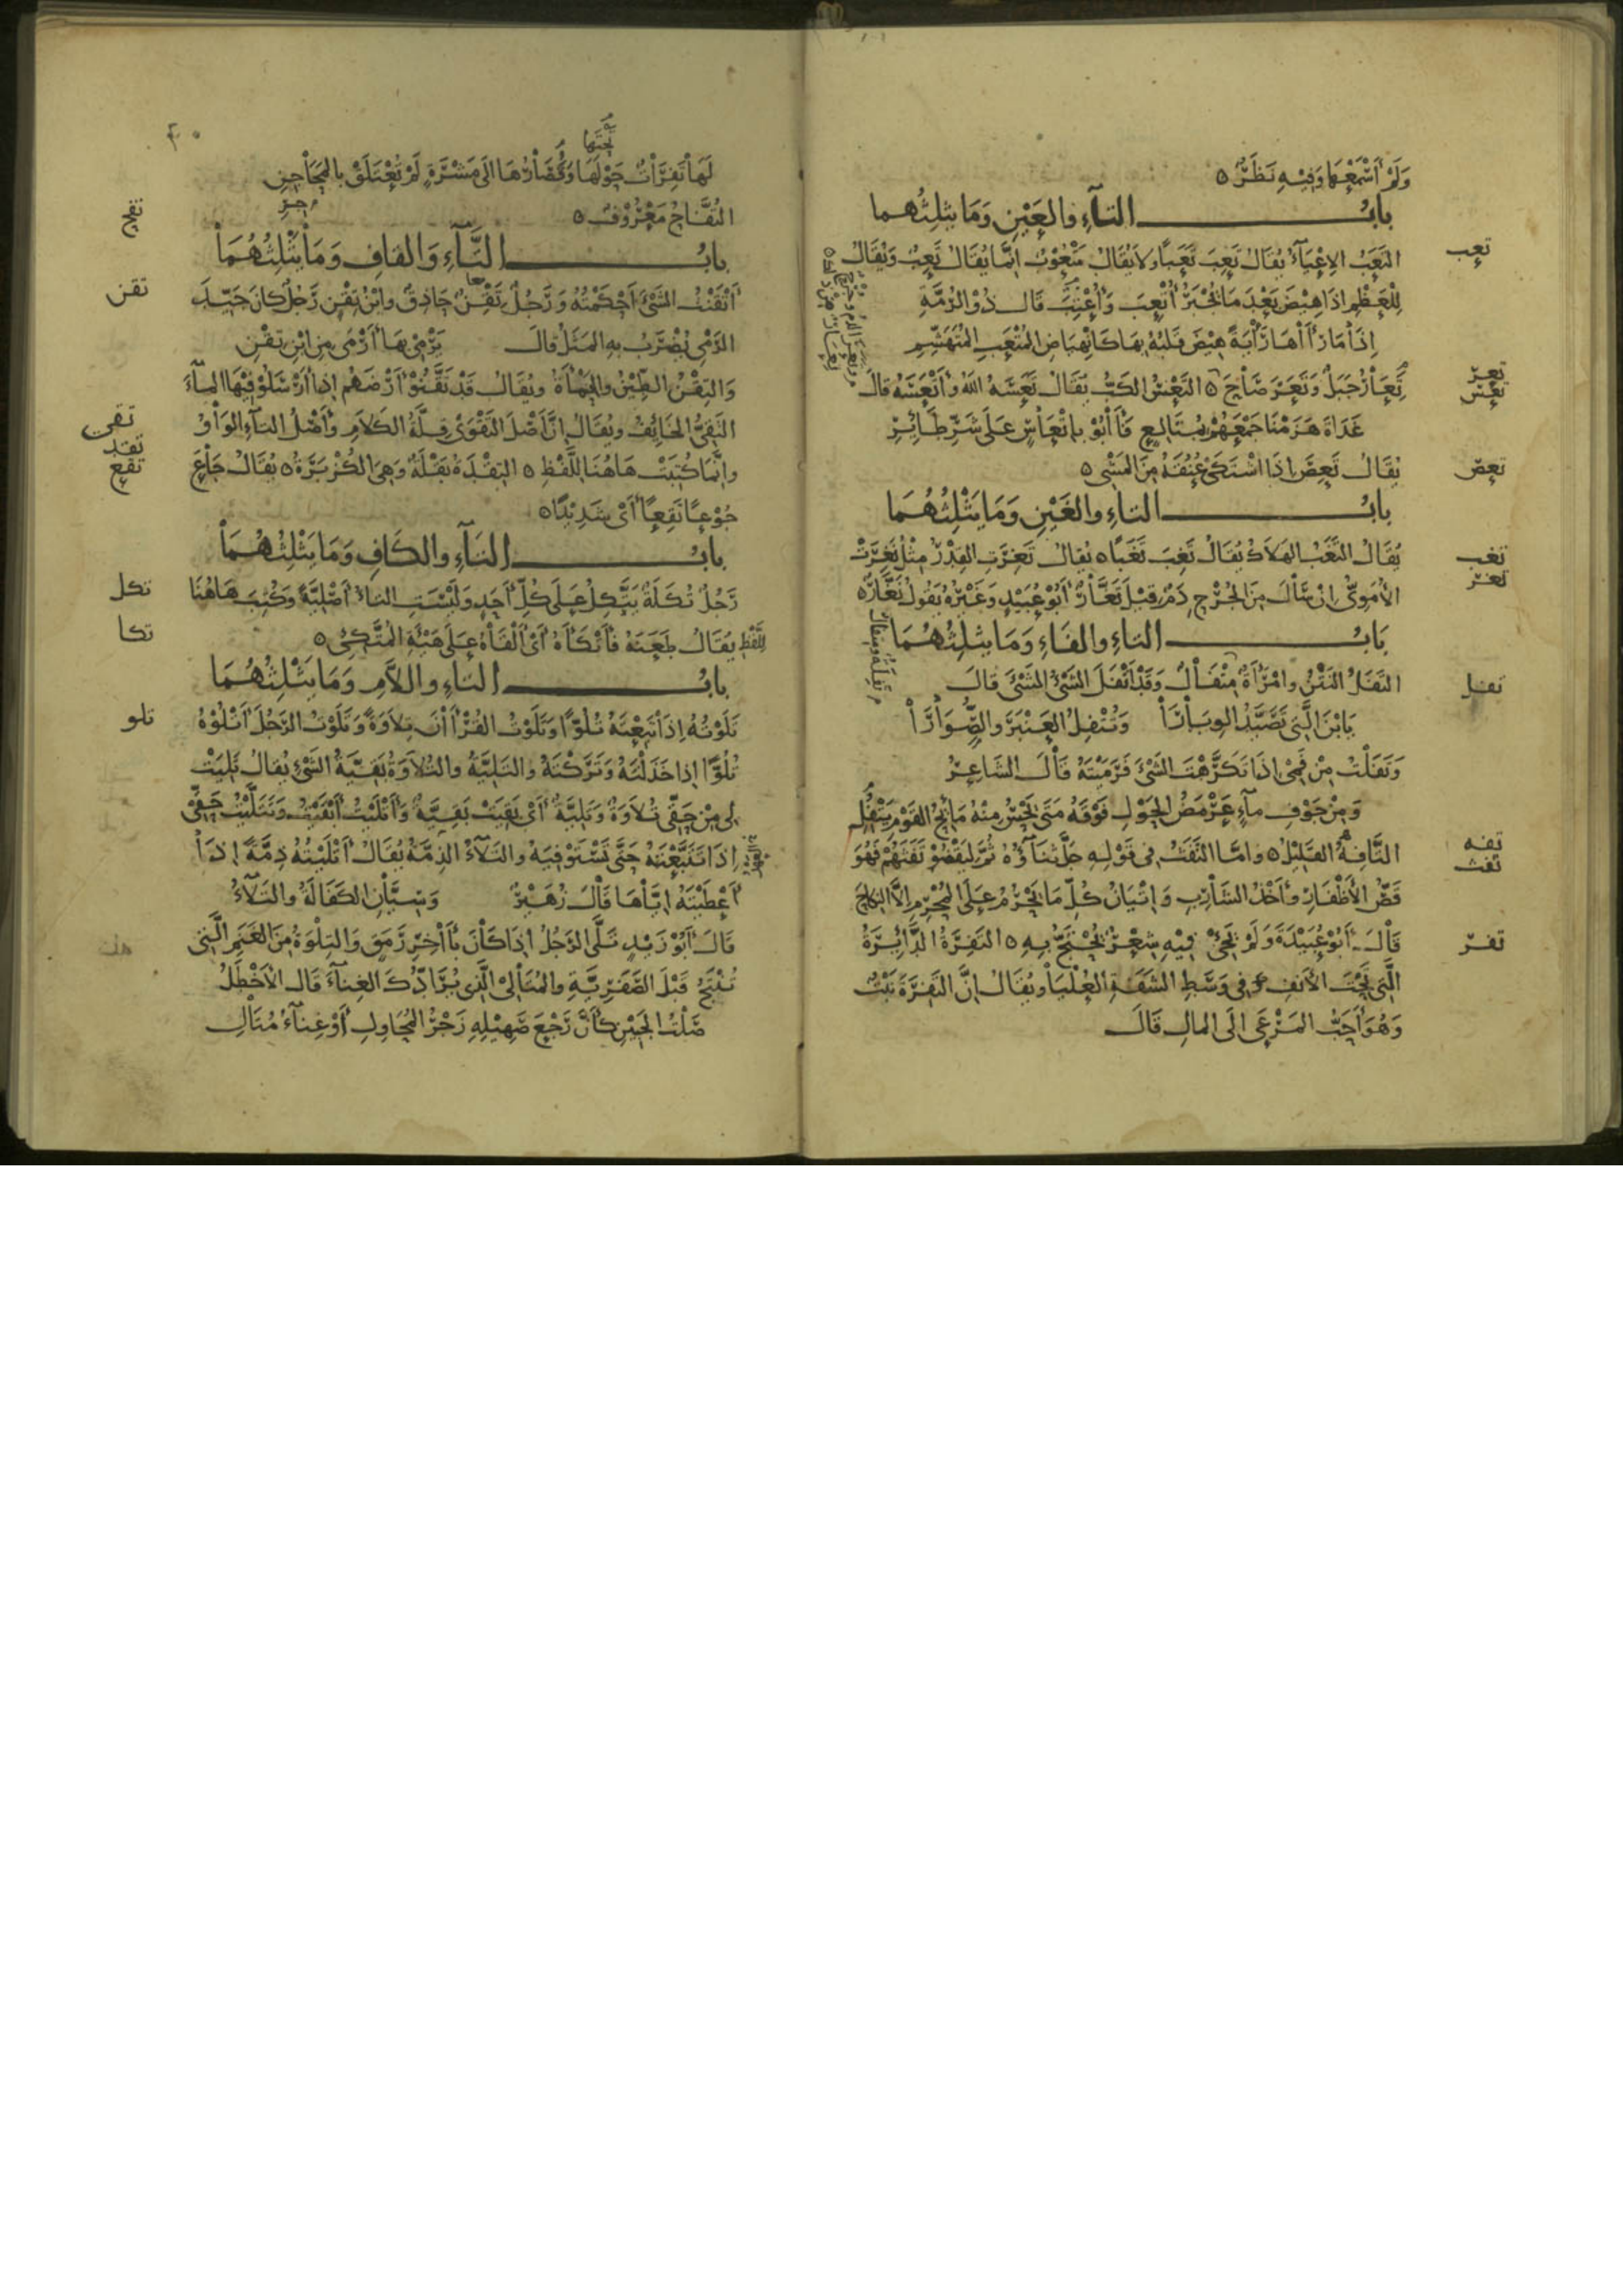 وَلَمْ أَسْمَعْهَا وَفِيهِ نَظَرٌ ٥
بابُ التاءِ والعَيْنِ وَمَا يثلثُهما
تعب
التَعَبُ الاِعْيَآءُ يُقَالُ تَعِبَ تَعَبًا وَلاَ يُقَالُ مَتْعُوبٌ اِنَّمَا يُقَالُ تَعِبٌ وَيُقَالُ
لِلْعَظْمِ اِذَا هِيضَ بَعْدَ مَا يُجْبَرُ أُتْعِبَ وَأُعْتِبَ قَالَ ذُو الرُمَّةِ
اِذَا مَا رَأَاهَا رَأْيَةً هِيْضَ قَلْبُهُ بِهَا كَانْهِيَاضِ المُتْعَبِ المُتَهَشِّمِ
تعر
تعس
تِعَارُ جَبَلٌ وَتَعَرَ صَاحَ ٥ التَعْسُ الكَبُّ يُقَالُ تَعَسَهُ اللّٰهُ وَأَتْعَسَهُ قَالَ
غَدَاةَ هَزَمْنَا جَمْعَهُمْ بِمُتَالِعٍ فَأَابُوْ بِاِتْعَاسٍ عَلَى شَرِّ طَائِرِ
تعص
يُقَالُ تَعِصَ اِذَا اشْتَكَى عُنُقَهُ مِنَ المَشْى ٥
بابُ التاءِ والغَيْنِ وَمَا يَثْلِثُهُمَا
تغب
تغر
يُقَالُ التَغَبُ الهَلاَكُ يُقَالُ تَغِبَ تَغَبًا ٥ يُقَالُ تَغِرَتِ القِدْرُ مِثْلُ نَغِرَتْ
الأُمَوِىُّ اِنْ سَالَ مِنَ الجُرْحِ دَمٌ قِيْلَ تَغَّارٌ أَبُوْ عُبَيْدٍ وَغَيْرُهُ يَقُولُ نَغَّارٌ ٥
بَابُ التاءِ والفَاءِ وَمَا يثلِثُهُمَا
تفل
التَفَلُ النَتْنُ وامْرَأَةٌ مِتْفَالٌ وَقَدْ أَتْفَلَ الشَىْءُ الشَىْءَ قَالَ
يَا ابْنَ الَّتِى تَصَيَّدُ الوِبَارَا وَتُتْفِلُ العَنْبَرَ والصِّوَارَا
وَتَفَلْتُ مِنْ فَمِى اِذَا تَكَرَّهْتَ الشَىْءَ فَرَمَيْتَهُ قَالَ الشَاعِرُ
وَمِنْ جَوْفِ مَآءٍ عَرْمَضُ الحَوْلِ فَوْقَهُ مَتَى يَحْسُ مِنْهُ مَائِحُ القَوْمِ يَتْفُلِ
تفه
تفث
التَّافِهُ القَلِيْلُ ٥ وامَّا التَفَثُ فِى قَوْلِهِ جَلَّ ثَنَآؤُهُ ثُمَّ لْيَقْضُوْا تَفَثَهُمْ فَهُوَ
قَصُّ الأَظْفَارِ وأَخْذُ الشَارِبِ وَاِتْيَانُ كُلِّ مَا يَحْرُمُ عَلَى المُحْرِمِ اِلاَّ النِكَاحَ
تفر
قَالَ أَبُوْ عُبَيْدَةَ وَلَمْ يَجِئْ فِيْهِ شِعْرٌ يُحْتَجُّ بِهِ ٥ التَفِرَةُ الدَّائِرَةُ
الَّتِى تَحْتَ الأَنْفِ فِى وَسَطِ الشَفَةِ العُلْيَا وَيُقَالُ اِنَّ التَفِرَةَ نَبْتٌ
وَهُوَ أَحَبُّ المَرْعَى اِلَى المَالِ قَالَ
٤٠
تحتها
لَهَا تَفِرَاتٌ حَوْلَهَا وَقُصَارُهَا اِلَى مَشْرَةٍ لَمْ تُعْتَلَقْ بِالمَحَاجِنِ
تفح
التُفَّاحُ مَعْرُوْفٌ ٥
بابُ التَّآءِ وَالقافِ وَمَا يَثْلِثُهُمَا
تقن
أَتْقَنْتُ الشَىْءَ أَحْكَمْتُهُ وَرَجُلٌ تِقْنٌ حَاذِقٌ وابْنُ تِقْنٍ رَجُلٌ كانَ جَيِّدَ
الرَمْىِ يُضْرَبُ بِهِ المَثَلُ قالَ يَرْمِى بِهَا أَرْمَى مِنِ ابْنِ تِقْنِ
وَالتِقْنُ الطِيْنُ والحَمْأَةُ ويُقَالُ قَدْ تَقَّنُوْا أَرْضَهُمْ اِذَا أَرْسَلُوْا فِيْهَا المَآءَ
تقى
التَقِىُّ الخَائِفُ ويُقَالُ اِنَّ أَصْلَ التَقْوَى قِلَّةُ الكَلاَمِ وَأَصْلُ التآءِ الوَاوُ
تقد
تقع
وانَّمَا كُتِبَتْ هَاهُنَا لِلَّفْظِ ٥ التِقْدَةُ بَقْلَةٌ وَهِىَ الكُزْبَرَةُ ٥ يُقَالُ جَاعَ
جُوْعًا تَقِعًا أَىْ شَدِيْدًا ٥
بابُ التَآءِ والكَافِ وَمَا يَثْلِثُهُمَا
تكل
رَجُلٌ تُكَلَةٌ يَتَّكِلُ عَلَى كُلِّ أَحَدٍ وَلَيْسَتِ التاءُ أَصْلِيَّةً وَكُتِبَ هَاهُنَا
تكا
لِلَّفْظِ يُقَالُ طَعَنَهُ فَأَتْكَأَهُ أَىْ أَلْقَاهُ عَلَى هَيْئَةِ المُتَّكِئِ ٥
بابُ التاءِ واللاَّمِ وَمَا يَثْلِثُهُمَا
تلو
تَلَوْتُهُ اِذَا تَبِعْتَهُ تُلُوًّا وَتَلَوْتُ القُرْأَانَ تِلاَوَةً وَتَلَوْتُ الرَجُلَ أَتْلُوْهُ
تُلُوًّا اِذَا خَذَلْتَهُ وَتَرَكْتَهُ والتَلِيَّةُ والتُلاَوَةُ بَقِيَّةُ الشَىْءِ يُقالُ تَلِيَتْ
لِى مِنْ حَقِّى تُلاَوَةٌ وَتَلِيَّةٌ أَىْ بَقِيَتْ بَقِيَّةٌ وَأَتْلَيْتُ أَبْقَيْتُ وَتَتَلَّيْتُ حَقِّى
اِذَا تَتَبَّعْتَهُ حَتَّى تَسْتَوْفِيَهُ والتَلآءُ الذِمَّةُ يُقَالُ أَتْلَيْتُهُ ذِمَّةً اِذَا
أَعْطَيْتَهُ اِيَّاهَا قَالَ زُهَيْرٌ وَسِيَّانِ الكَفَالَةُ والتَلآءُ
قَالَ أَبُوْ زَيْدٍ تَلَّى الرَجُلُ اِذَا كَانَ بِأَاخِرِ رَمَقٍ وَالتِلْوَةُ مِنَ الغَنَمِ الَّتِى
تُنْتَجُ قَبْلَ الصَّفَرِيَّةِ والمُتَالِى الَّذِى يُرَادُّكَ الغِنَآءَ قَالَ الأَخْطَلُ
صَلْتُ الجَبِيْنِ كَأَنَّ رَجْعَ صَهِيْلِهِ زَجْرُ المُحَاوِلِ أَوْ غِنَآءُ مُتَالِ